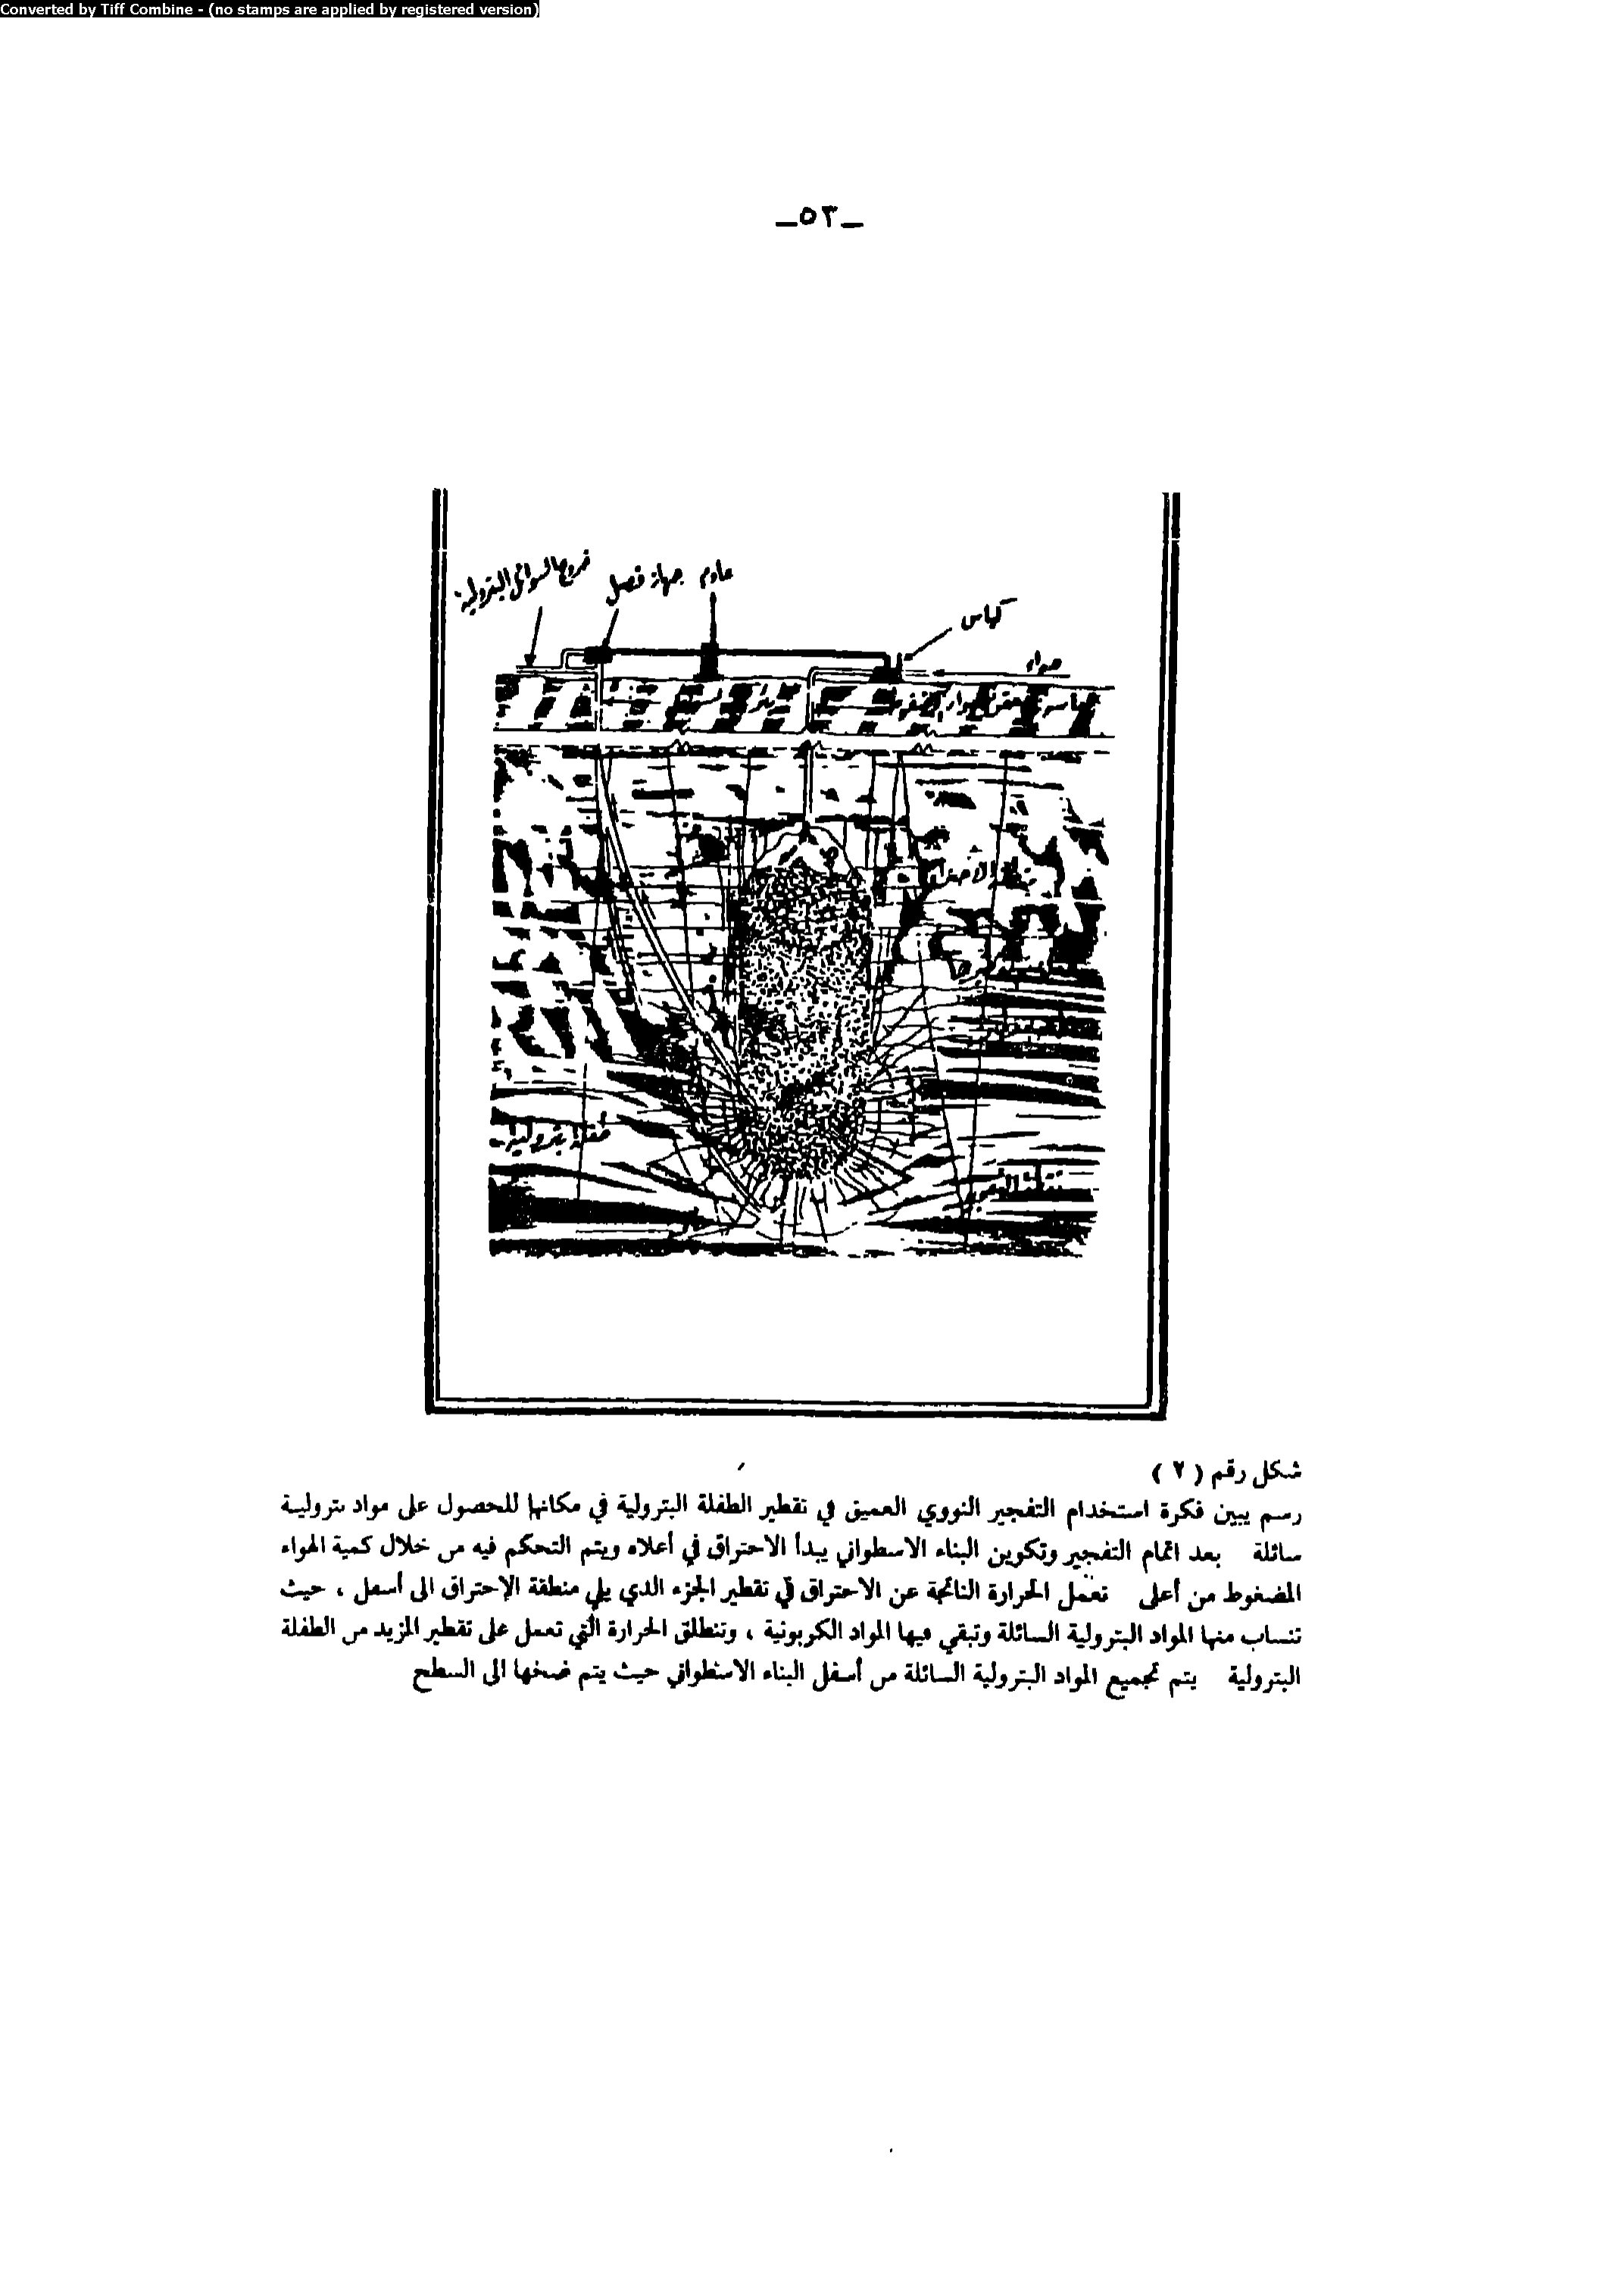 Converted by Tiff Combine - (no stamps are applied by registered version)
_٥٣_
خروج السوائل البترولية
جهاز فصل
عادم
كباس
هواء
طفلة بترولية
شكل رقم ( ٢ )
رسم يبين فكرة استخدام التفجير النووي العميق في تقطير الطفلة البترولية في مكانها للحصول على مواد بتروليـة
سائلة بعد اتمام التفجير وتكوين البناء الاسطواني يبدأ الاحتراق في أعلاه ويتم التحكم فيه من خلال كمية الهواء
المضغوط من أعلى تعمل الحرارة الناتجة عن الاحتراق في تقطير الجزء الذي يلي منطقة الإحتراق الى أسفل ، حيث
تنساب منها المواد البترولية السائلة وتبقي فيها المواد الكربونية ، وتنطلق الحرارة التي تعمل على تقطير المزيد من الطفلة
البترولية يتم تجميع المواد البترولية السائلة من أسفل البناء الاسطواني حيث يتم ضخها الى السطح